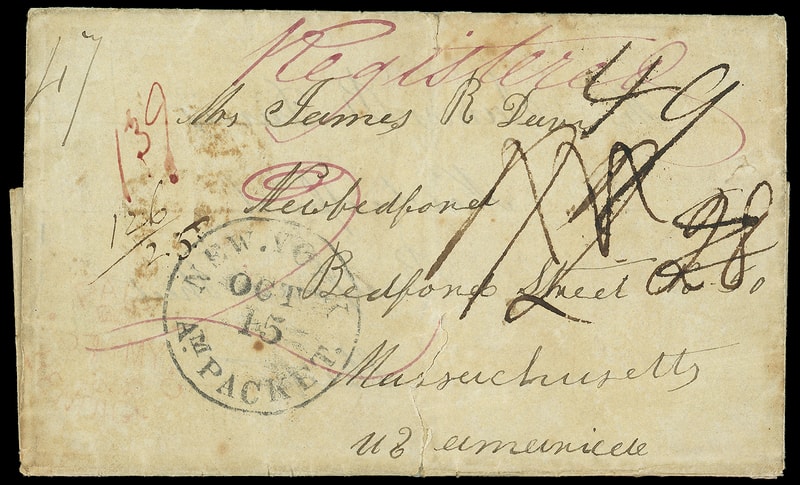 47
Registered
49
Mrs James R Dunn
139
Newbedford
98
126
/25
NEW.YORK
OCT
15
AM. PACKET.
Bedford Street No 50
Massachusetts
us amanicae